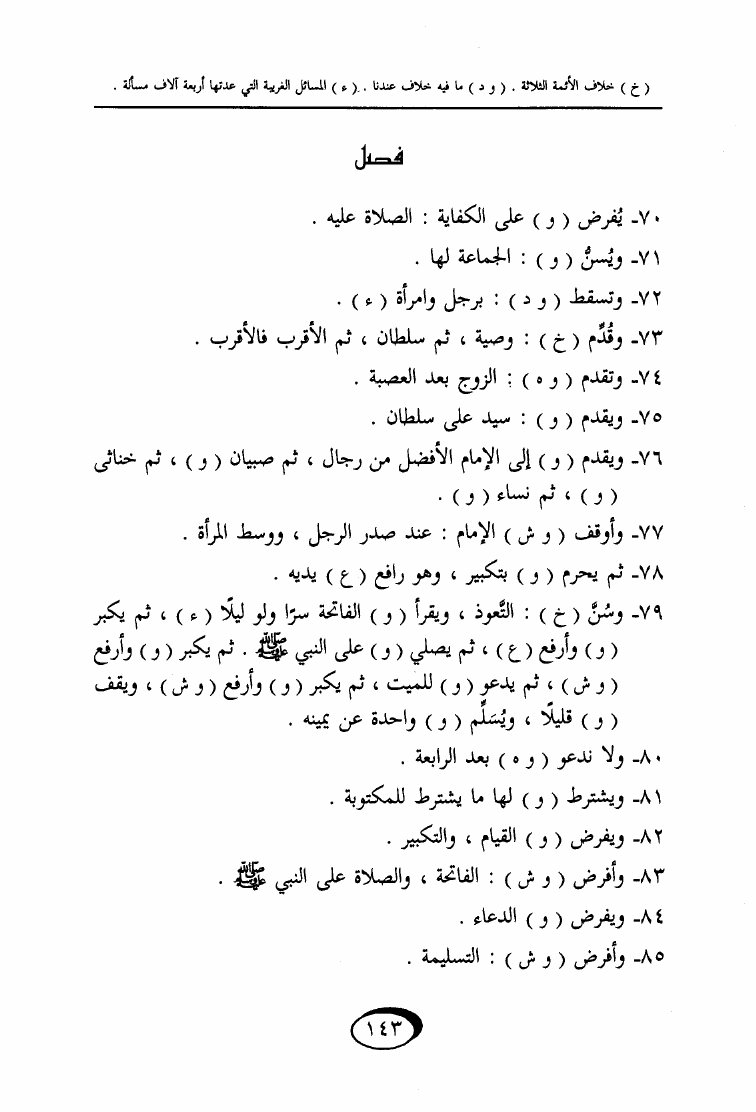 ( خ ) خلاف الأئمة الثلاثة . ( و د ) ما فيه خلاف عندنا . ( ء ) المسائل الغريبة التي عدتها أربعة آلاف مسألة .
فصل
٧٠- يُفرض ( و ) على الكفاية : الصلاة عليه .
٧١- ويُسنُّ ( و ) : الجماعة لها .
٧٢- وتسقط ( و د ) : برجل وامرأة ( ء ) .
٧٣- وقُدِّم ( خ ) : وصية ، ثم سلطان ، ثم الأقرب فالأقرب .
٧٤- وتقدم ( و ه ) : الزوج بعد العصبة .
٧٥- ويقدم ( و ) : سيد على سلطان .
٧٦- ويقدم ( و ) إلى الإمام الأفضل من رجال ، ثم صبيان ( و ) ، ثم خناثى
( و ) ، ثم نساء ( و ) .
٧٧- وأوقف ( و ش ) الإمام : عند صدر الرجل ، ووسط المرأة .
٧٨- ثم يحرم ( و ) بتكبير ، وهو رافع ( ع ) يديه .
٧٩- وسُنَّ ( خ ) : التَّعوذ ، ويقرأ ( و ) الفاتحة سرًا ولو ليلًا ( ء ) ، ثم يكبر
( و ) وأرفع ( ع ) ، ثم يصلي ( و ) على النبي ﷺ . ثم يكبر ( و ) وأرفع
( و ش ) ، ثم يدعو ( و ) للميت ، ثم يكبر ( و ) وأرفع ( و ش ) ، ويقف
( و ) قليلًا ، ويُسَلِّم ( و ) واحدة عن يمينه .
٨٠- ولا ندعو ( و ه ) بعد الرابعة .
٨١- ويشترط ( و ) لها ما يشترط للمكتوبة .
٨٢- ويفرض ( و ) القيام ، والتكبير .
٨٣- وأفرض ( و ش ) : الفاتحة ، والصلاة على النبي ﷺ .
٨٤- ويفرض ( و ) الدعاء .
٨٥- وأفرض ( و ش ) : التسليمة .
١٤٣